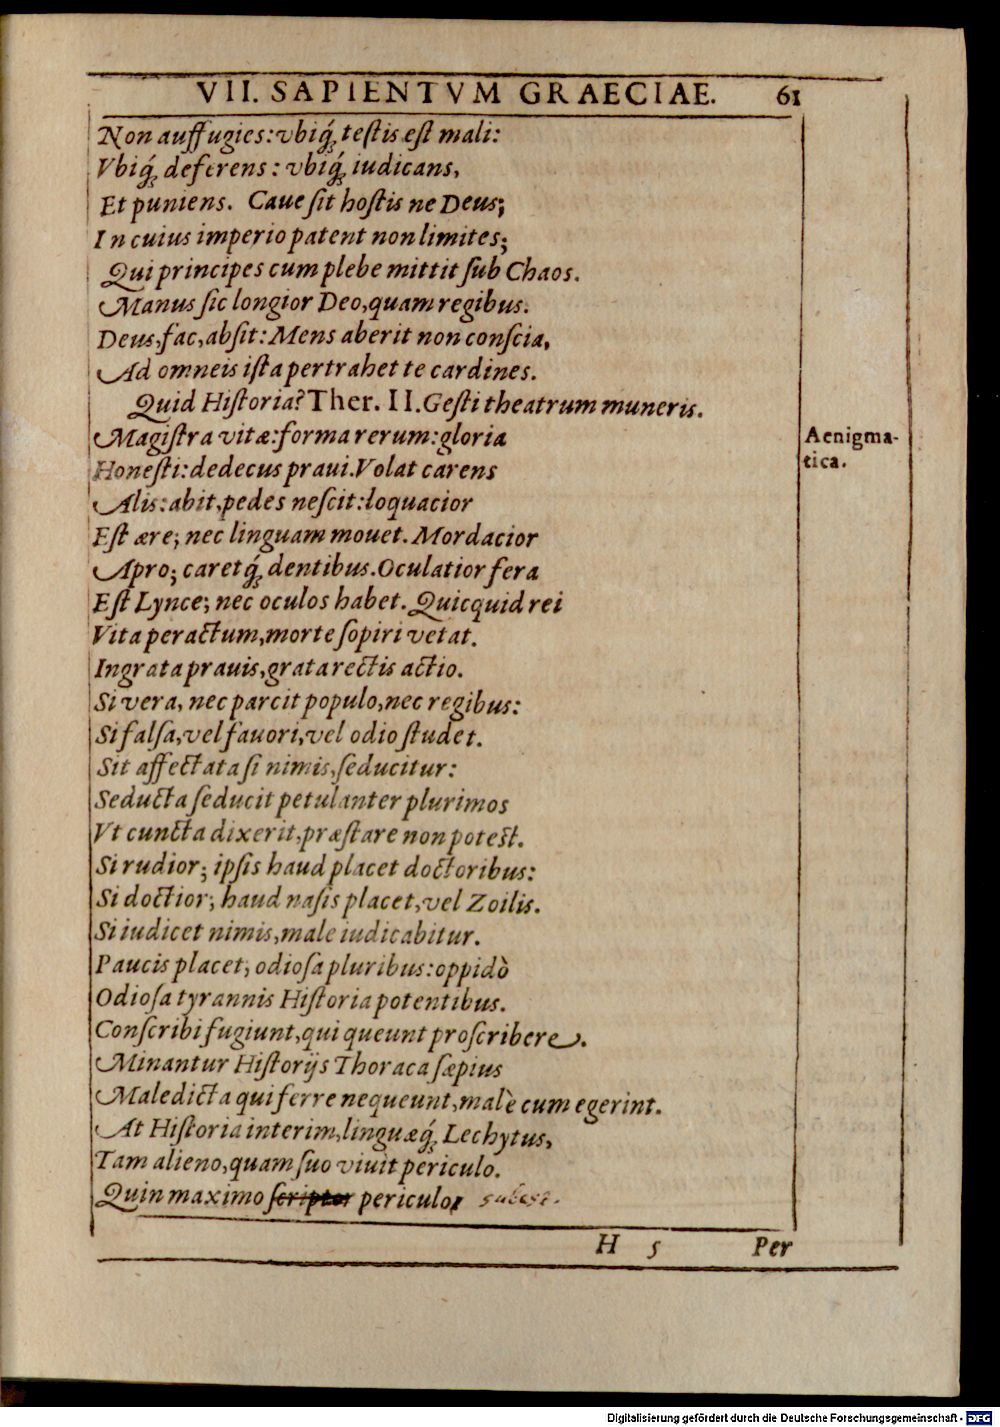 VII. SAPIENTVM GRAECIAE. 61
Non auffugies: vbiq́; teſtis eſt mali:
Vbiq́; deferens: vbiq́; iudicans,
Et puniens. Caue ſit hoſtis ne Deus;
In cuius imperio patent non limites;
Qui principes cum plebe mittit ſub Chaos.
Manus ſic longior Deo, quam regibus.
Deus, fac, abſit: Mens aberit non conſcia,
Ad omneis iſta pertrahet te cardines.
Quid Hiſtoria? Ther. II. Geſti theatrum muneris.
Magiſtra vitæ: forma rerum: gloria
Aenigma-
tica.
Honeſti: dedecus praui. Volat carens
Alis: abit, pedes neſcit: loquacior
Eſt ære; nec linguam mouet. Mordacior
Apro; caretq́; dentibus. Oculatior fera
Eſt Lynce; nec oculos habet. Quicquid rei
Vita peractum, morte ſopiri vetat.
Ingrata prauis, grata rectis actio.
Si vera, nec parcit populo, nec regibus:
Si falſa, vel fauori, vel odio ſtudet.
Sit affectata ſi nimis, ſeducitur:
Seducta ſeducit petulanter plurimos
Vt cuncta dixerit, præſtare non poteſt.
Si rudior; ipſis haud placet doctoribus:
Si doctior; haud naſis placet, vel Zoilis.
Si iudicet nimis, male iudicabitur.
Paucis placet; odioſa pluribus: oppidò
Odioſa tyrannis Hiſtoria potentibus.
Conſcribi fugiunt, qui queunt proſcribere.
Minantur Hiſtorijs Thoraca ſæpius
Maledicta qui ferre nequeunt, malè cum egerint.
At Hiſtoria interim, linguæq́; Lechytus,
Tam alieno, quam ſuo viuit periculo.
Quin maximo ſcriptor periculo, subest.
H 5 Per
Digitalisierung gefördert durch die Deutsche Forschungsgemeinschaft - DFG